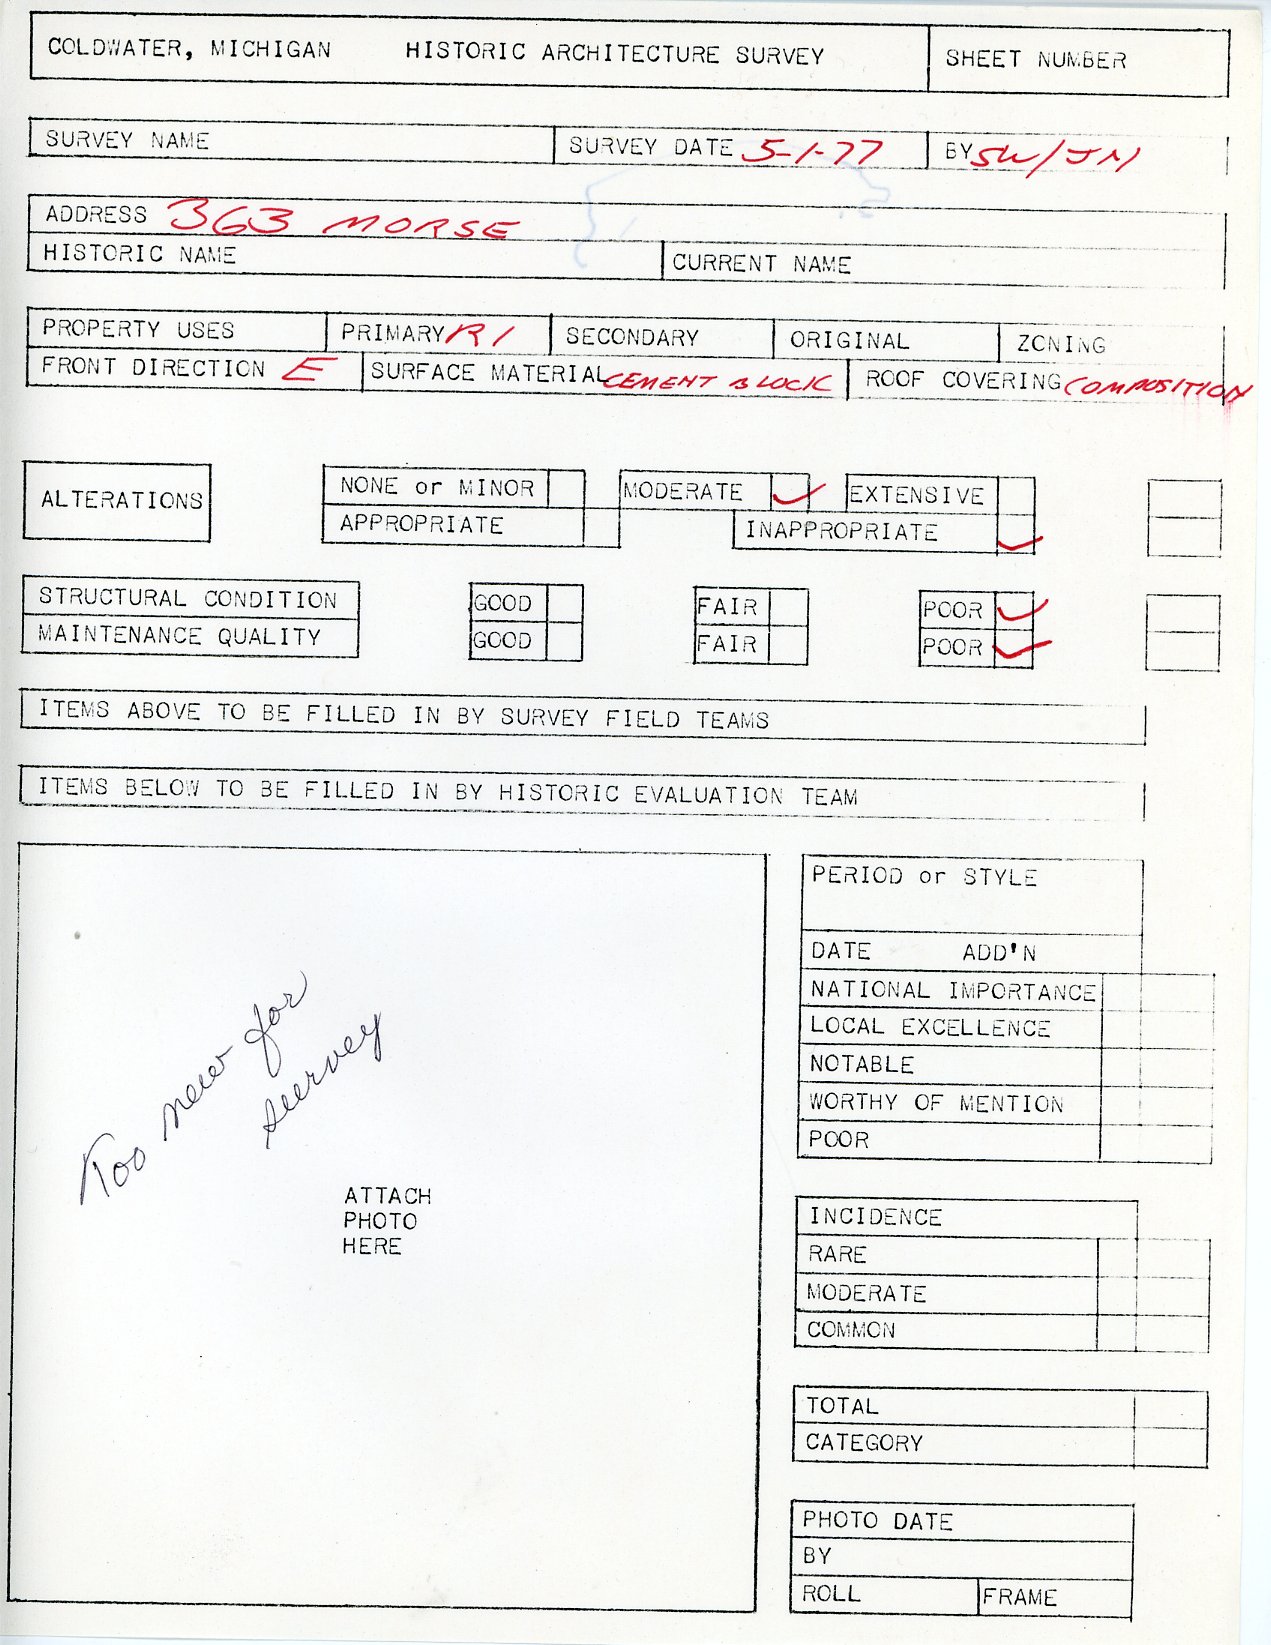 COLDWATER, MICHIGAN HISTORIC ARCHITECTURE SURVEY SHEET NUMBER
SURVEY NAME SURVEY DATE 5-1-77 BY SW/JM
ADDRESS 363 MORSE
HISTORIC NAME CURRENT NAME
PROPERTY USES PRIMARY R1 SECONDARY ORIGINAL ZONING
FRONT DIRECTION E SURFACE MATERIAL CEMENT BLOCK ROOF COVERING COMPOSITION
ALTERATIONS NONE or MINOR MODERATE ✓ EXTENSIVE
APPROPRIATE INAPPROPRIATE ✓
STRUCTURAL CONDITION GOOD FAIR POOR ✓
MAINTENANCE QUALITY GOOD FAIR POOR ✓
ITEMS ABOVE TO BE FILLED IN BY SURVEY FIELD TEAMS
ITEMS BELOW TO BE FILLED IN BY HISTORIC EVALUATION TEAM
Too new for
survey
ATTACH
PHOTO
HERE
PERIOD or STYLE
DATE ADD'N
NATIONAL IMPORTANCE
LOCAL EXCELLENCE
NOTABLE
WORTHY OF MENTION
POOR
INCIDENCE
RARE
MODERATE
COMMON
TOTAL
CATEGORY
PHOTO DATE
BY
ROLL FRAME